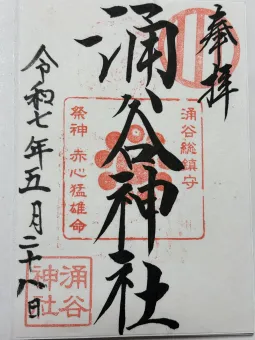 奉拝
涌谷総鎮守
涌谷神社
祭神 赤心猛雄命
令和七年五月二十八日
涌谷
神社